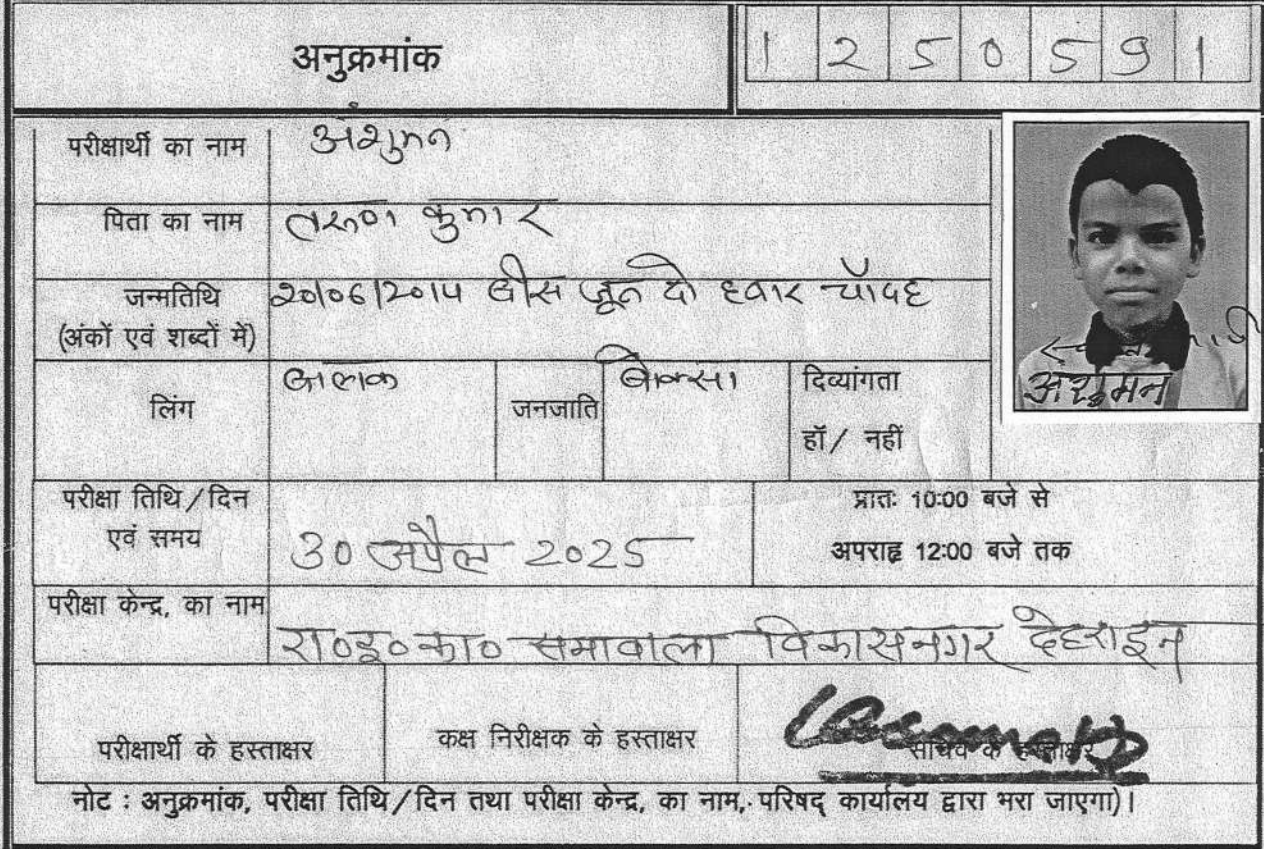 अनुक्रमांक 1250591
परीक्षार्थी का नाम अंशुमन
पिता का नाम तरूण कुमार
जन्मतिथि 20/06/2014 बीस जून दो हजार चौदह
(अंकों एवं शब्दों में)
लिंग बालक जनजाति बोक्सा दिव्यांगता
हॉ/ नहीं
अंशुमन
परीक्षा तिथि/दिन प्रातः 10:00 बजे से
एवं समय 30 अप्रैल 2025 अपराह्न 12:00 बजे तक
परीक्षा केन्द्र, का नाम
रा०इ०का० सभावाला विकासनगर देहरादून
परीक्षार्थी के हस्ताक्षर कक्ष निरीक्षक के हस्ताक्षर सचिव के हस्ताक्षर
नोट : अनुक्रमांक, परीक्षा तिथि/दिन तथा परीक्षा केन्द्र, का नाम, परिषद् कार्यालय द्वारा भरा जाएगा)।